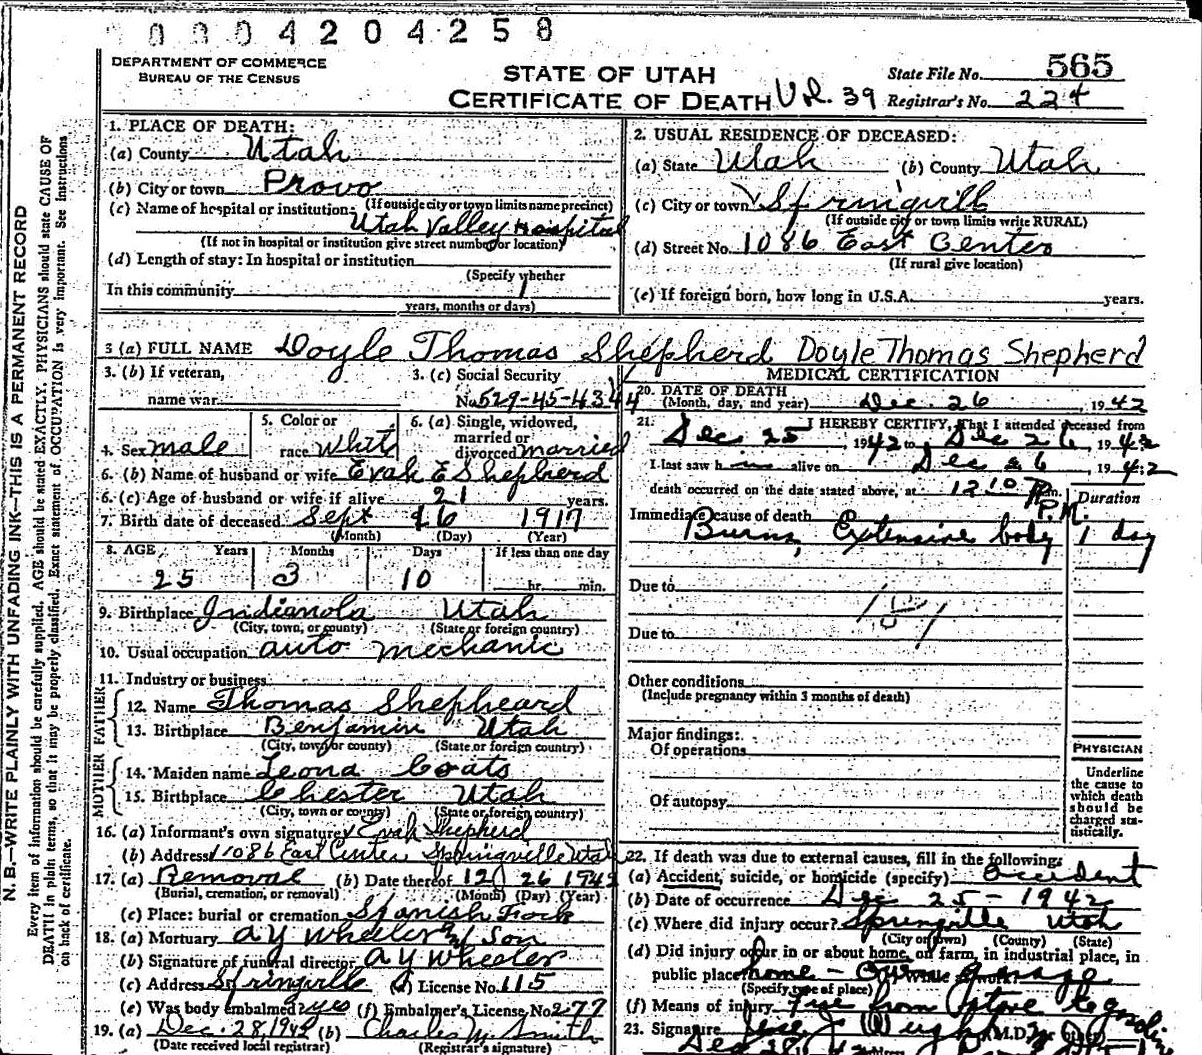 0 0 0 4 2 0 4 2 5 8
DEPARTMENT OF COMMERCE
BUREAU OF THE CENSUS
STATE OF UTAH
CERTIFICATE OF DEATH Vol. 39
State File No. 565
Registrar's No. 224
N. B.—WRITE PLAINLY WITH UNFADING INK—THIS IS A PERMANENT RECORD
Every item of information should be carefully supplied. AGE should be stated EXACTLY. PHYSICIANS should state CAUSE OF
DEATH in plain terms, so that it may be properly classified. Exact statement of OCCUPATION is very important. See instructions
on back of certificate.
1. PLACE OF DEATH:
(a) County Utah
(b) City or town Provo
(If outside city or town limits name precinct)
(c) Name of hospital or institution:
Utah Valley Hospital
(If not in hospital or institution give street number or location)
(d) Length of stay: In hospital or institution
(Specify whether
In this community
years, months or days)
2. USUAL RESIDENCE OF DECEASED:
(a) State Utah (b) County Utah
(c) City or town Springville
(If outside city or town limits write RURAL)
(d) Street No. 1086 East Center
(If rural give location)
(e) If foreign born, how long in U.S.A. years.
3 (a) FULL NAME Doyle Thomas Shepherd Doyle Thomas Shepherd
3. (b) If veteran,
name war
3. (c) Social Security
No. 529-45-4344
4. Sex male
5. Color or
race White
6. (a) Single, widowed,
married or
divorced married
6. (b) Name of husband or wife Evah E Shepherd
6. (c) Age of husband or wife if alive 21 years.
7. Birth date of deceased Sept 16 1917
(Month) (Day) (Year)
8. AGE Years Months Days If less than one day
25 3 10 hr. min.
9. Birthplace Indianola Utah
(City, town, or county) (State or foreign country)
10. Usual occupation auto mechanic
11. Industry or business
FATHER
12. Name Thomas Shepheard
13. Birthplace Benjamin Utah
(City, town or county) (State or foreign country)
MOTHER
14. Maiden name Leona Coats
15. Birthplace Chester Utah
(City, town or county) (State or foreign country)
16. (a) Informant's own signature Evah Shepherd
(b) Address 1086 East Center Springville Utah
17. (a) Removal (b) Date thereof 12 26 1942
(Burial, cremation, or removal) (Month) (Day) (Year)
(c) Place: burial or cremation Spanish Fork
18. (a) Mortuary A Y Wheeler and Son
(b) Signature of funeral director A Y Wheeler
(c) Address Springville (d) License No. 115
(e) Was body embalmed? yes (f) Embalmer's License No. 277
19. (a) Dec. 28, 1942 (b) Charles M Smith
(Date received local registrar) (Registrar's signature)
MEDICAL CERTIFICATION
20. DATE OF DEATH
(Month, day, and year) Dec. 26, 1942
21. I HEREBY CERTIFY, That I attended deceased from
Dec 25 1942 to Dec 26, 1942
I last saw him alive on Dec 26, 1942
death occurred on the date stated above, at 12:10 P.M.
Duration
Immediate cause of death
Burns, Extensive body 1 day
Due to
Due to
Other conditions
(Include pregnancy within 3 months of death)
Major findings:
Of operations
Of autopsy
PHYSICIAN
Underline
the cause to
which death
should be
charged sta-
tistically.
22. If death was due to external causes, fill in the following:
(a) Accident, suicide, or homicide (specify) accident
(b) Date of occurrence Dec 25 - 1942
(c) Where did injury occur? Springville Utah
(City or town) (County) (State)
(d) Did injury occur in or about home, on farm, in industrial place, in
public place? home - garage
(Specify type of place)
(f) Means of injury Fire from stove to
23. Signature M.D.